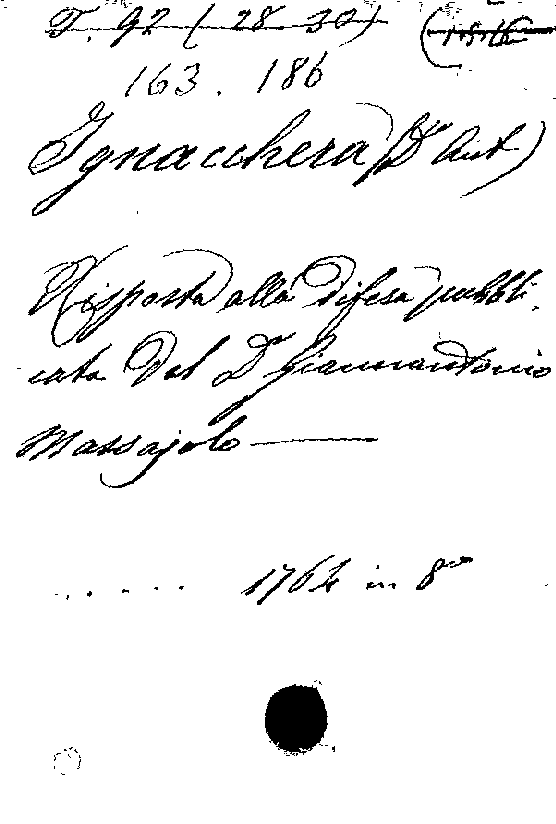 T. 92 (28 30)
163. 186
Ignacchera (Dr Ant)
Risposta alla difesa pubbli-
cata dal Dr Giannantonio
Massajolo
..... 1764 in 8o